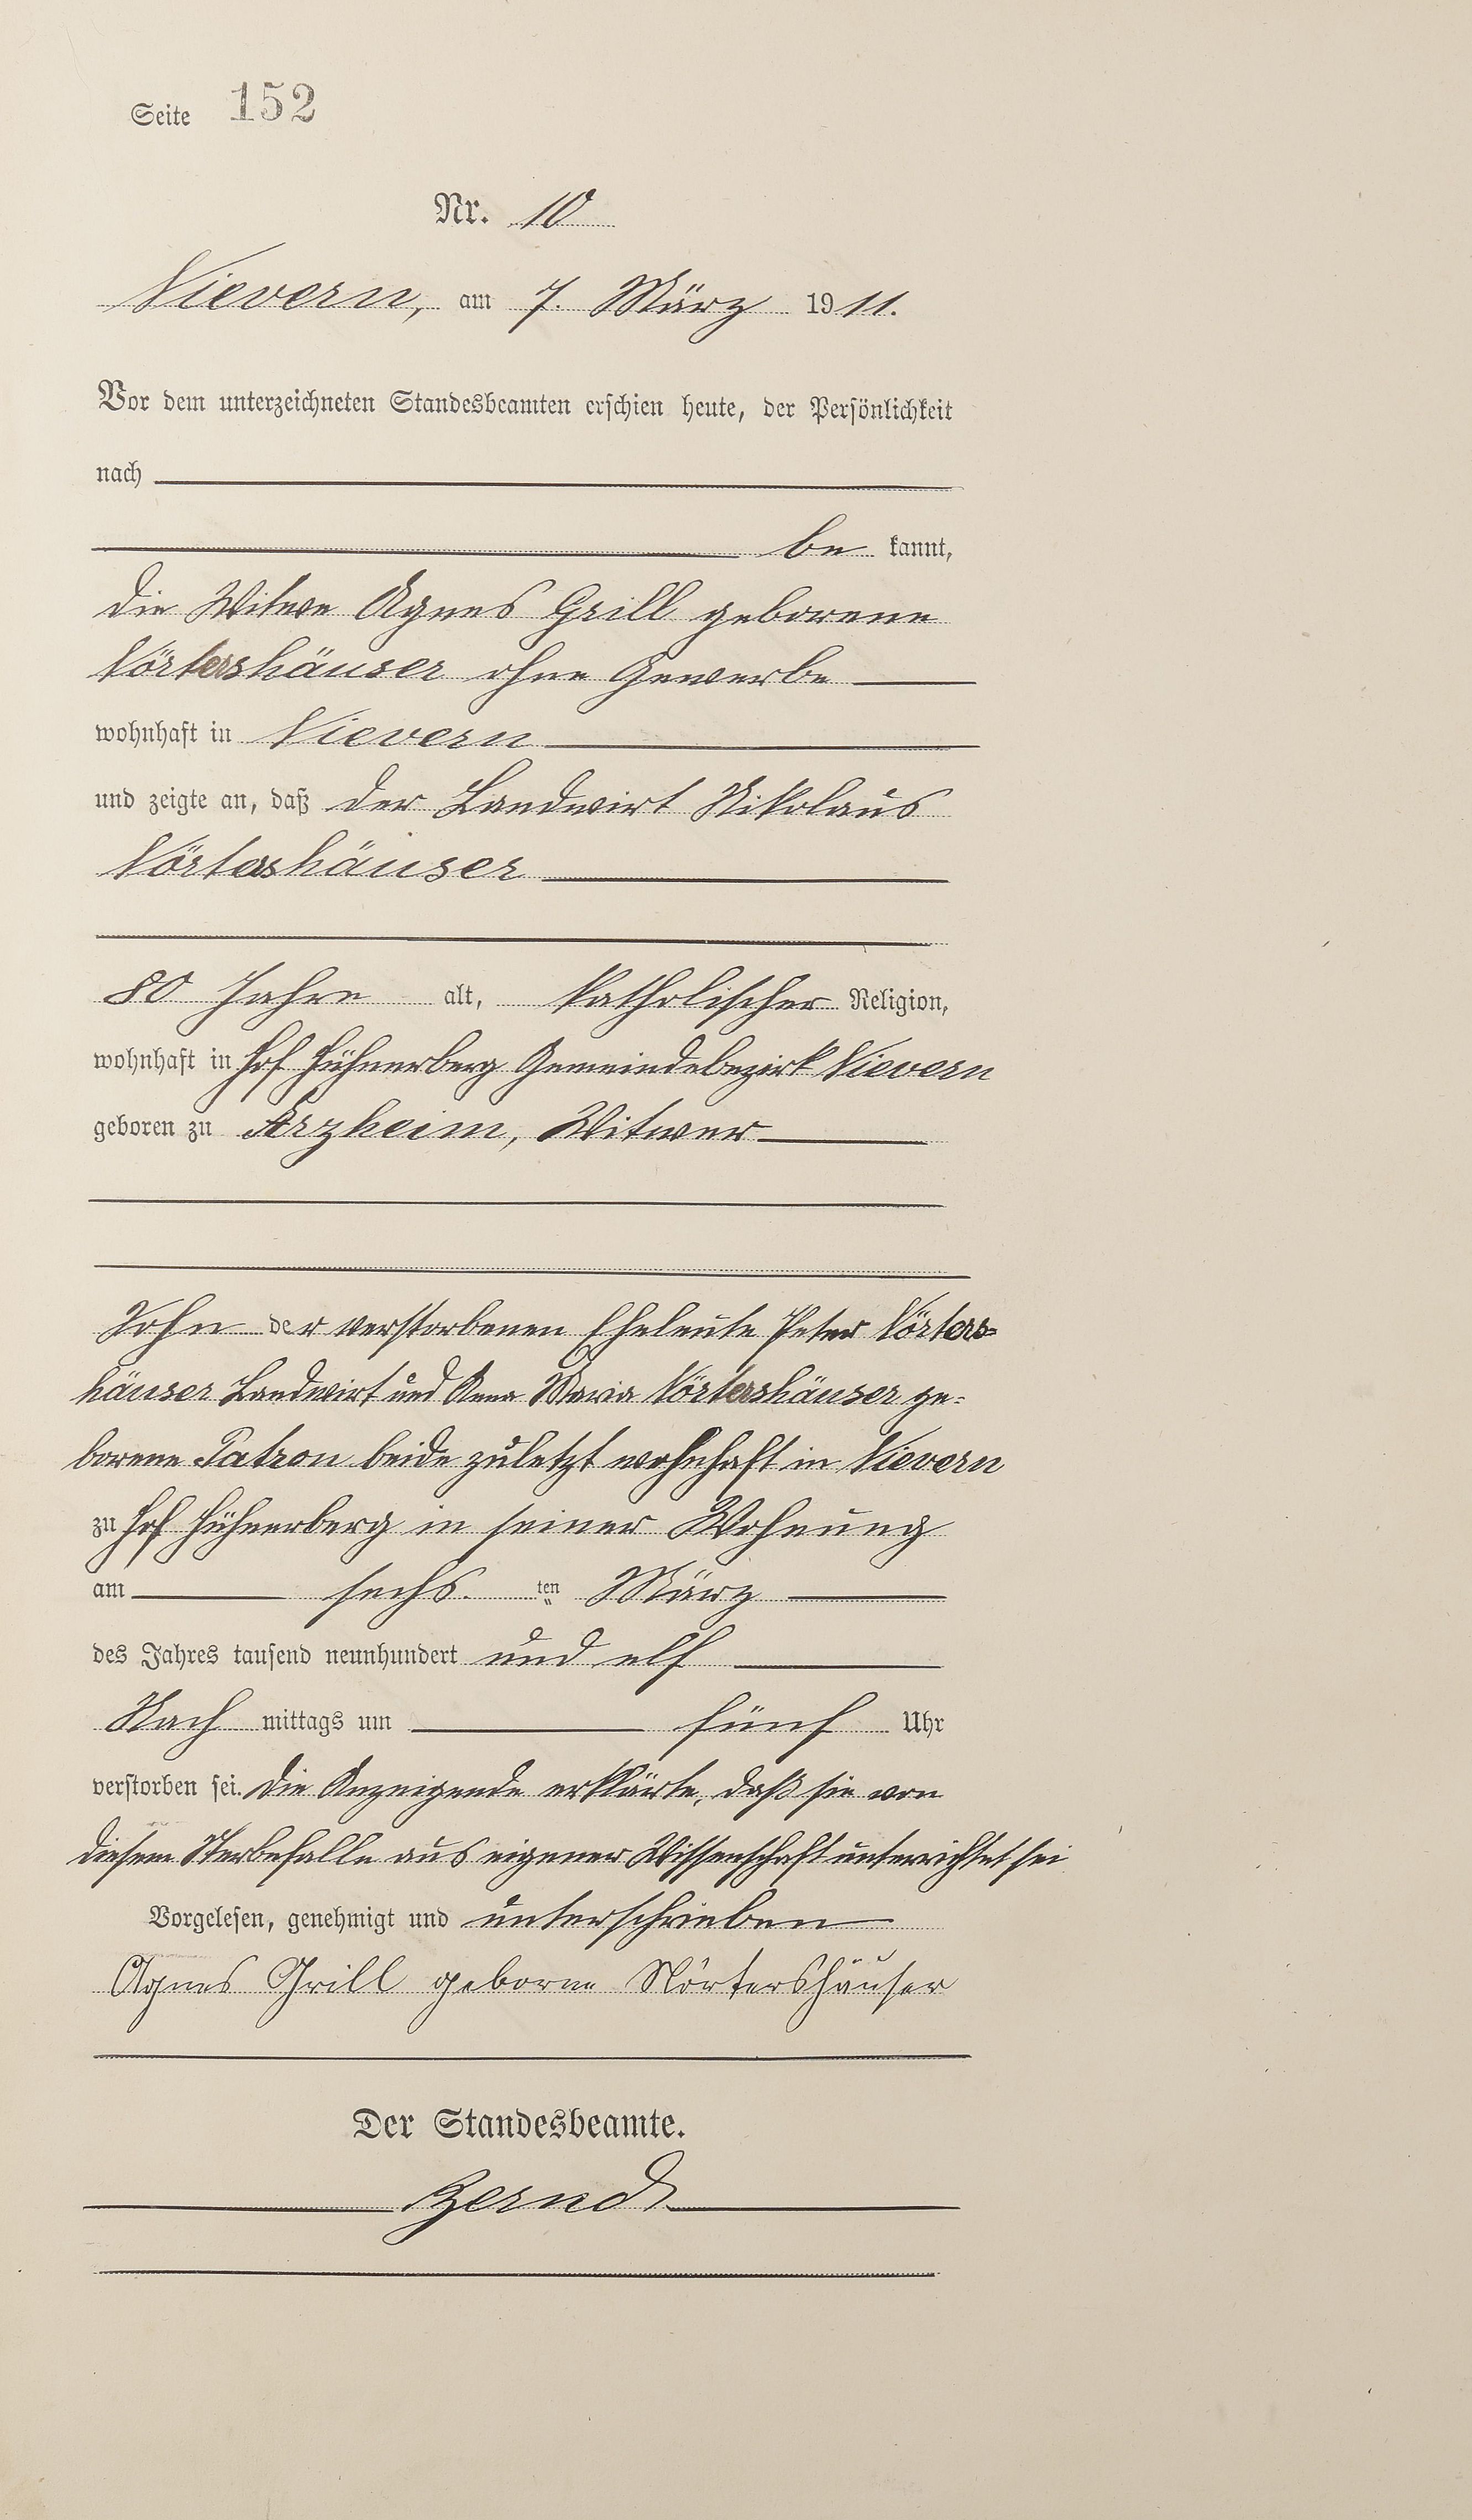 Seite 152
Nr. 10
Nievern, am 7. März 1911.
Vor dem unterzeichneten Standesbeamten erschien heute, der Persönlichkeit
nach
be kannt,
die Witwe Agnes Grill geborene
Nörtershäuser ohne Gewerbe
wohnhaft in Nievern
und zeigte an, daß der Landwirt Nikolaus
Nörtershäuser
80 Jahre alt, katholischer Religion,
wohnhaft in Hof Hühnerberg Gemeindebezirk Nievern
geboren zu Arzheim, Witwer
Sohn der verstorbenen Eheleute Peter Nörters=
häuser Landwirt und Anna Maria Nörtershäuser ge=
borene Patron beide zuletzt wohnhaft in Nievern
zu Hof Hühnerberg in seiner Wohnung
am sechs. ten März
des Jahres tausend neunhundert und elf
Nach mittags um fünf Uhr
verstorben sei. Die Anzeigende erklärte, daß sie von
diesem Sterbefalle aus eigener Wissenschaft unterrichtet sei
Vorgelesen, genehmigt und unterschrieben
Agnes Grill geborne Nörtershäuser
Der Standesbeamte.
Zernd